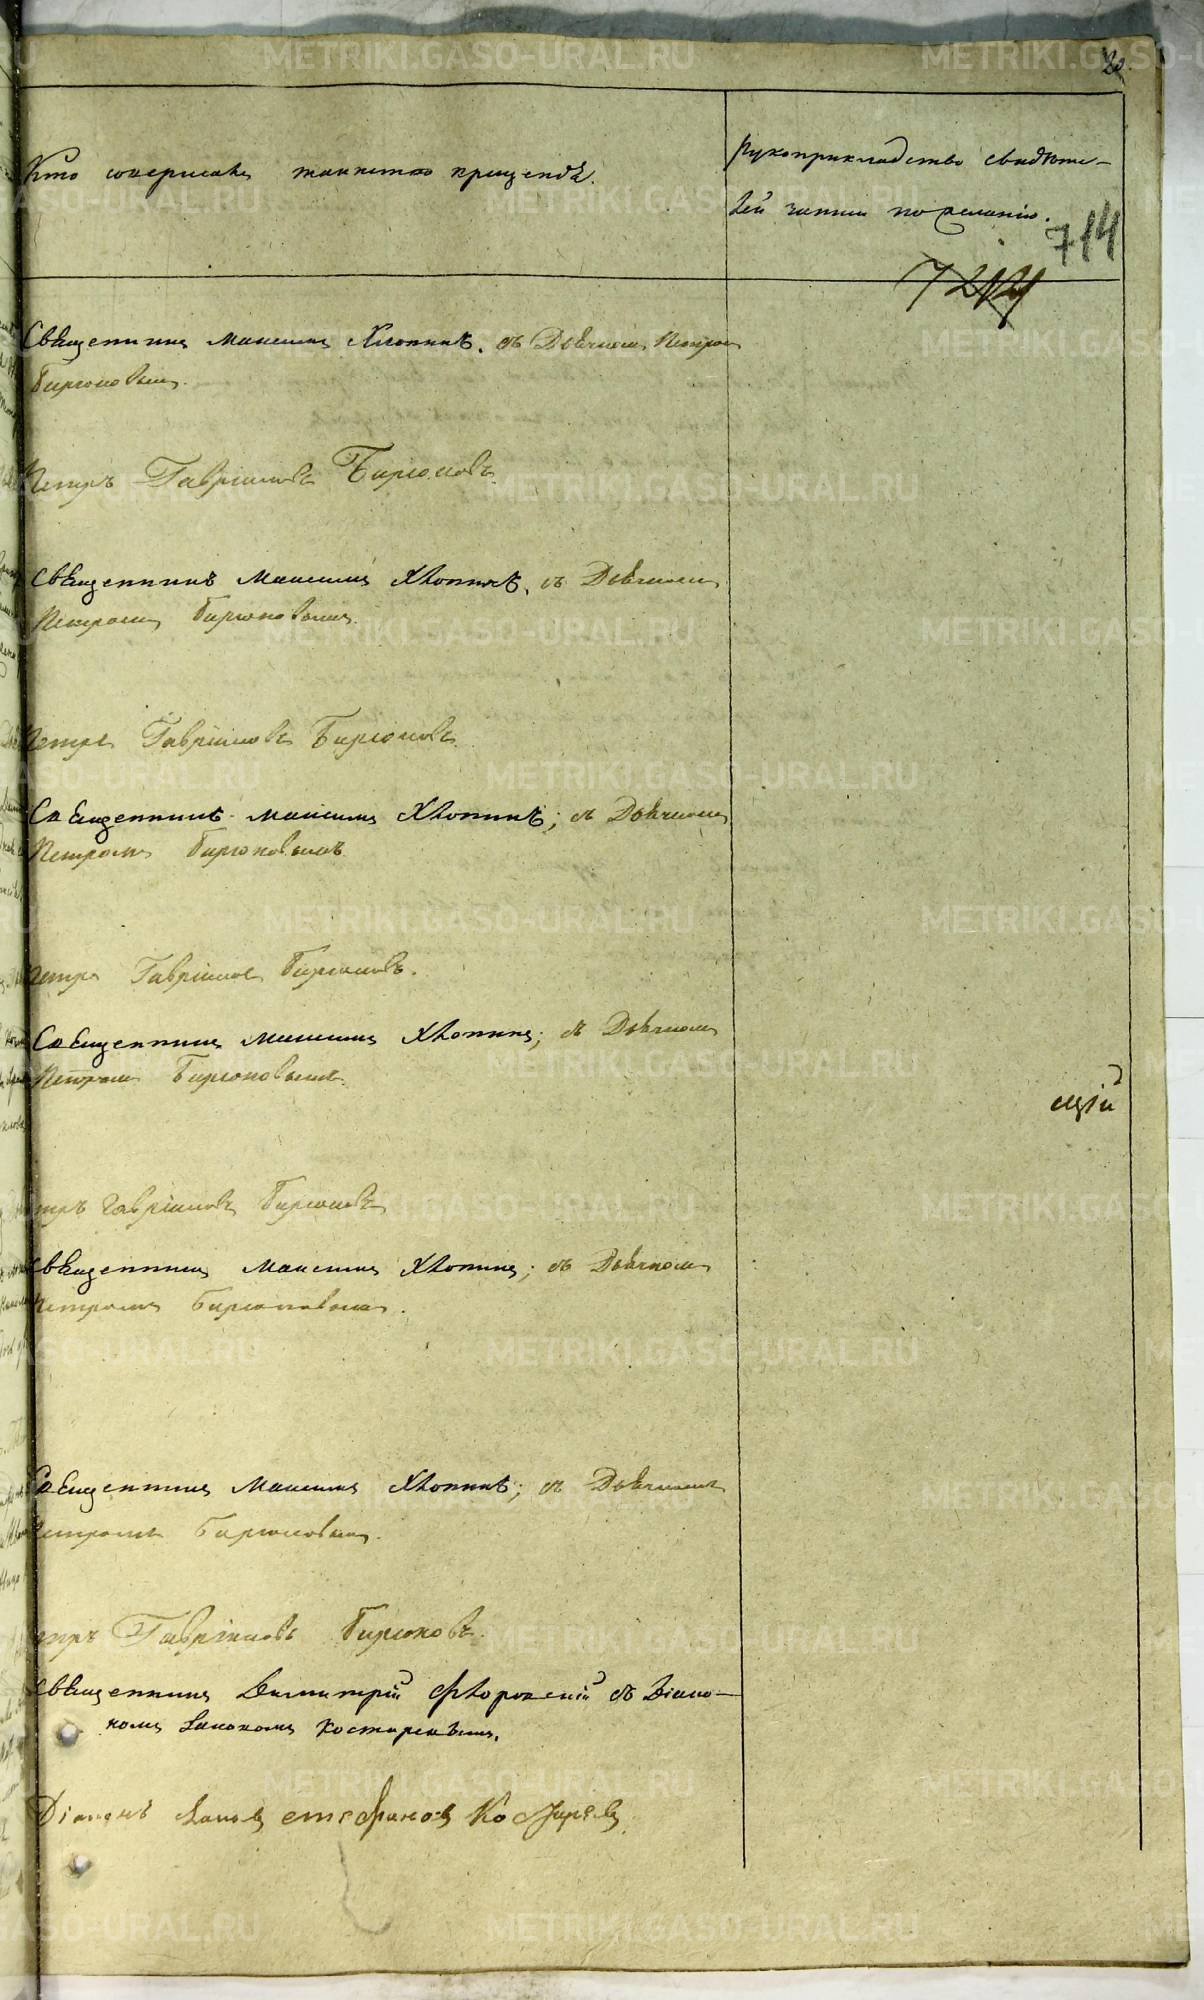 Кто совершалъ таинство крещенія.
Рукоприкладство свидѣте-
лей записи по желанію.
714
Священникъ Максимъ Хлопинъ. съ Дьячкомъ Петромъ
Бирюковымъ.
Петръ Гавріиловъ Бирюковъ.
Священникъ Максимъ Хлопинъ, съ Дьячкомъ
Петромъ Бирюковымъ.
Петръ Гавріиловъ Бирюковъ.
Священникъ Максимъ Хлопинъ; съ Дьячкомъ
Петромъ Бирюковымъ
Петръ Гавріиловъ Бирюковъ.
Священникъ Максимъ Хлопинъ; съ Дьячкомъ
Петромъ Бирюковымъ.
щій
Петръ Гавріиловъ Бирюковъ
Священникъ Максимъ Хлопинъ; съ Дьячкомъ
Петромъ Бирюковымъ.
Священникъ Максимъ Хлопинъ; съ Дьячкомъ
Петромъ Бирюковымъ.
Петръ Гавріиловъ Бирюковъ.
Священникъ Димитрій Флоровскій съ Діако-
номъ Іаковомъ Костаревымъ.
Діаконъ Іаковъ Стефановъ Костаревъ
METRIKI.GASO-URAL.RU